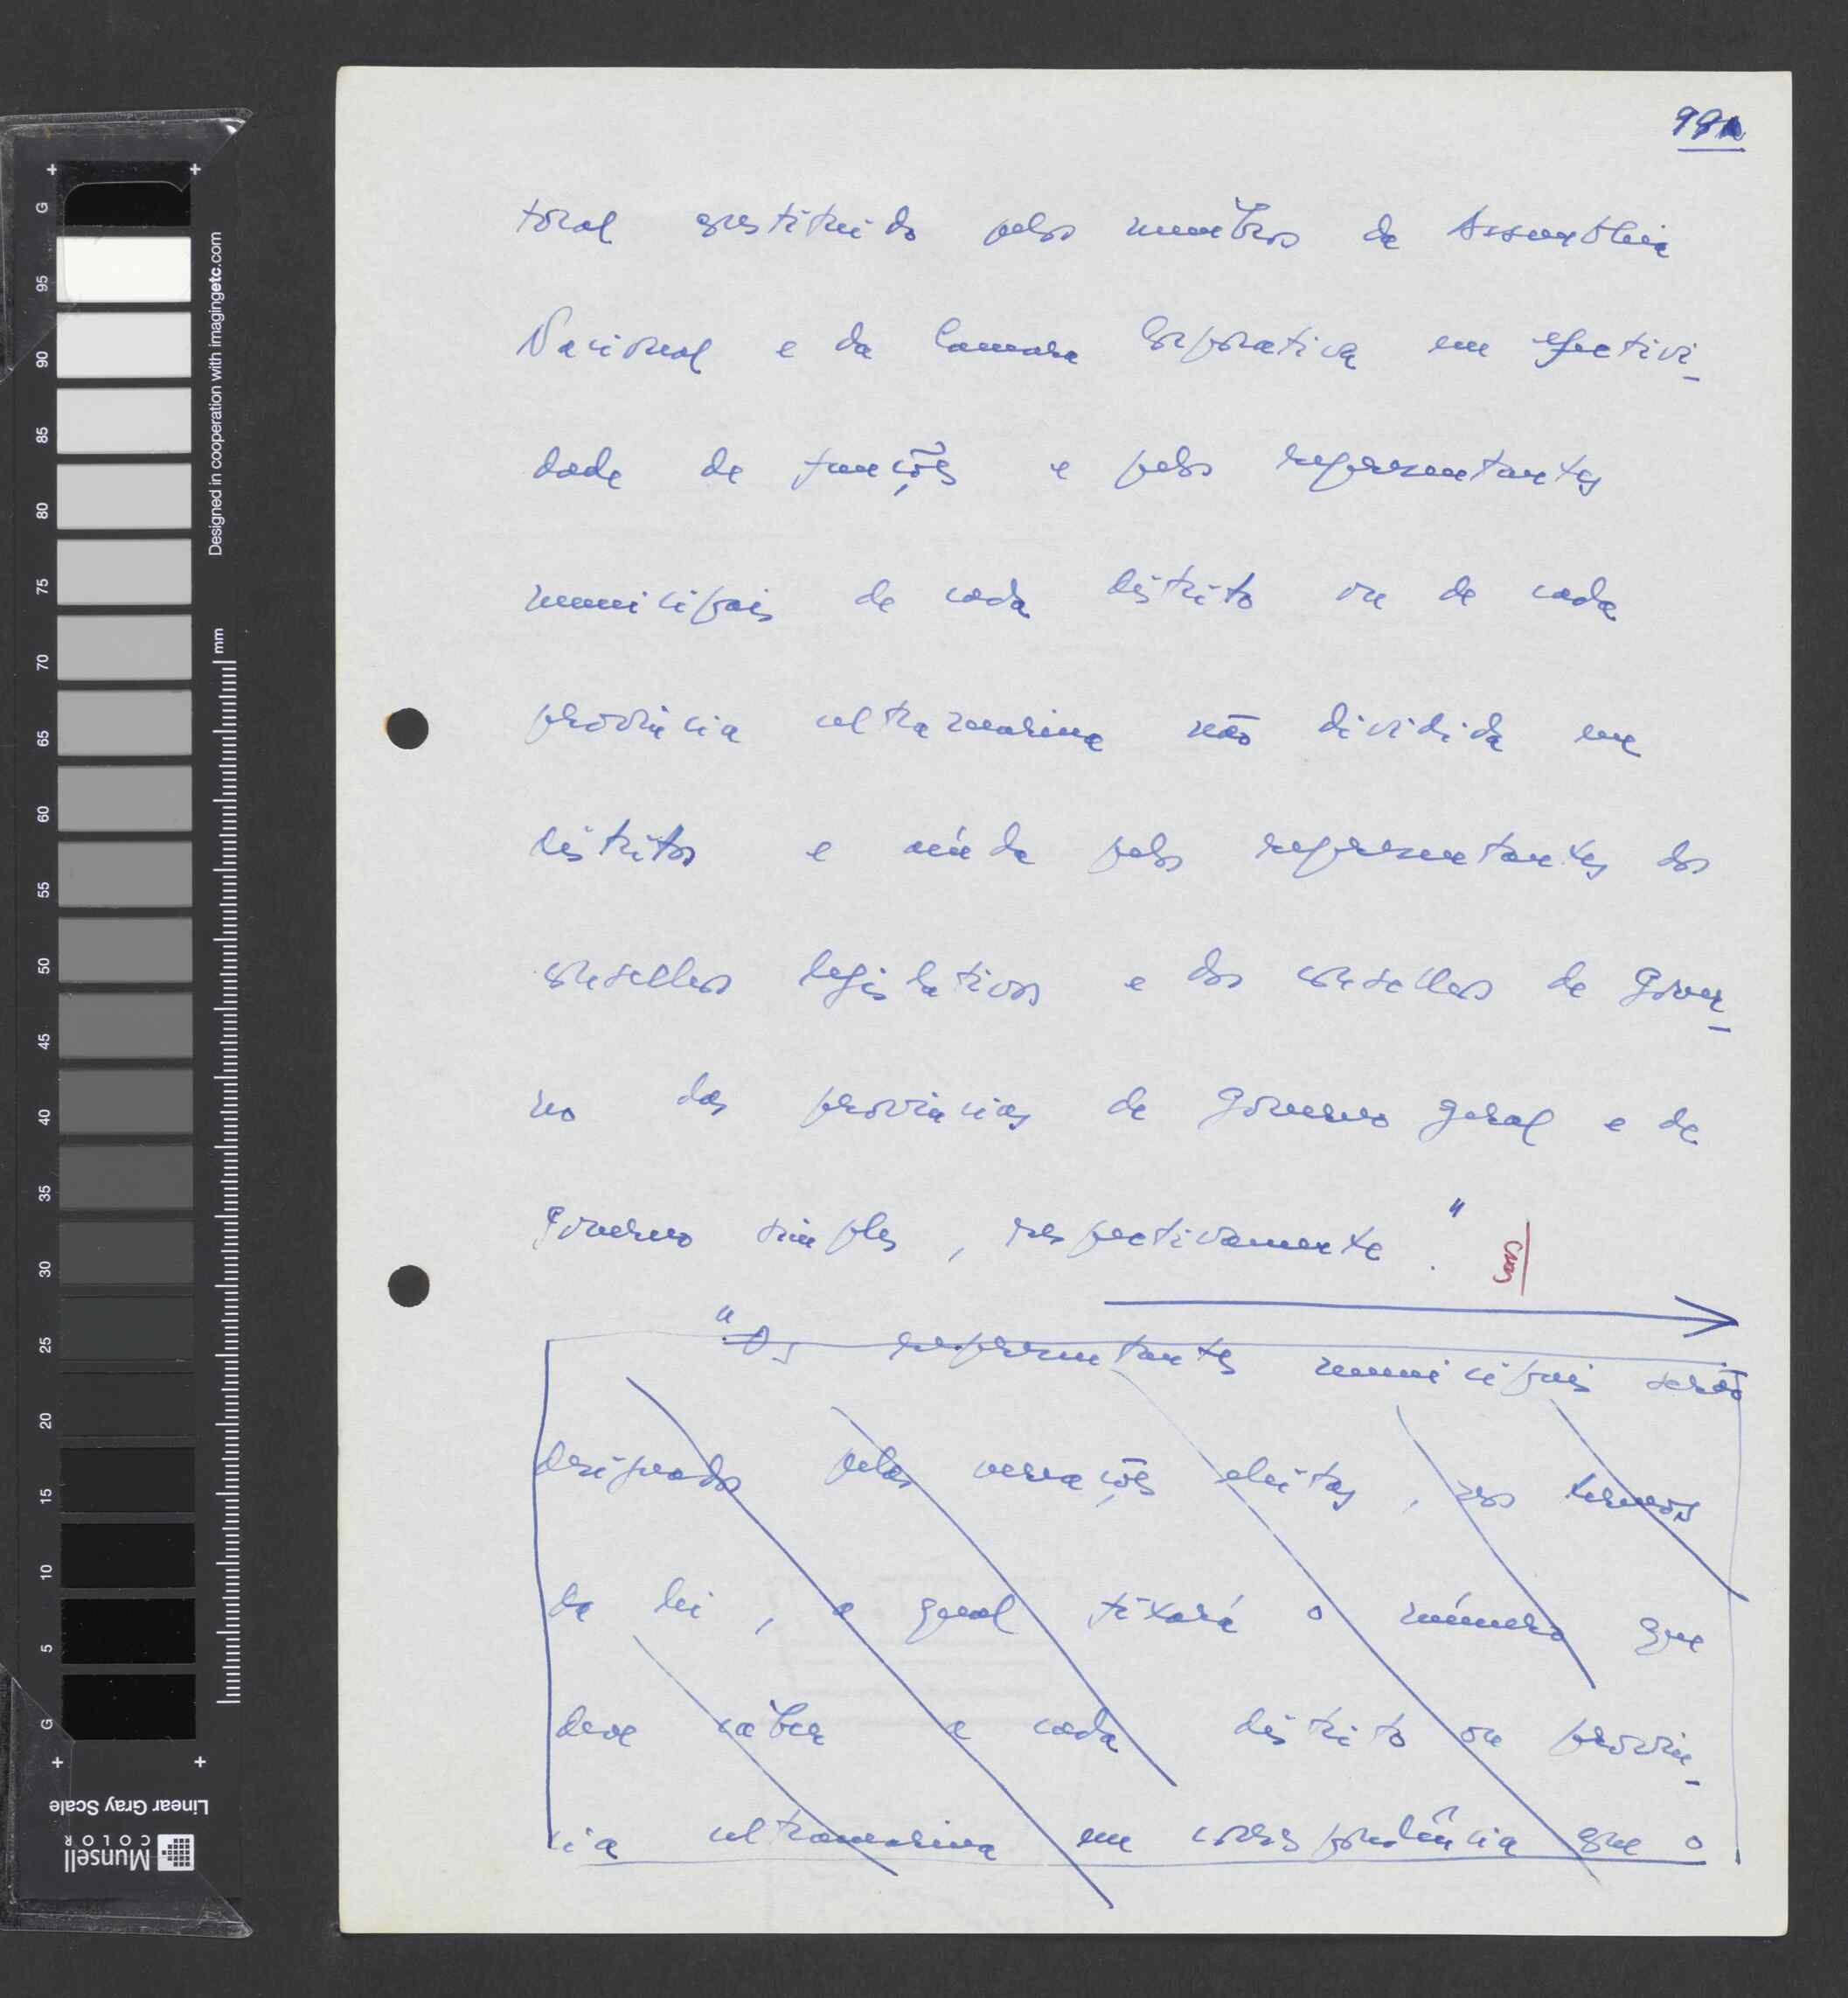 toral constituido pelos membros da Assembleia
Nacional e da Camara Corporativa em efectivi-
dade de funções e pelos representantes
municipais de cada distrito ou de cada
provincia ultramarina não dividida em
distritos e ainda pelos representantes dos
conselhos legislativos e dos conselhos de Gover-
no das provincias de Governo geral e de
Governo simples, respectivamente."
"Os representantes municipais serão
designados pelas vereações eleitas, nos termos
da lei, a qual fixará o número que
deve caber a cada distrito ou provin-
cia ultramarina em correspondência que o
G 95 90 85 80 75 70 65 60 55 50 45 40 35 30 25 20 15 10 5 G
Designed in cooperation with imagingetc.com
mm
Linear Gray Scale
Munsell
COLOR